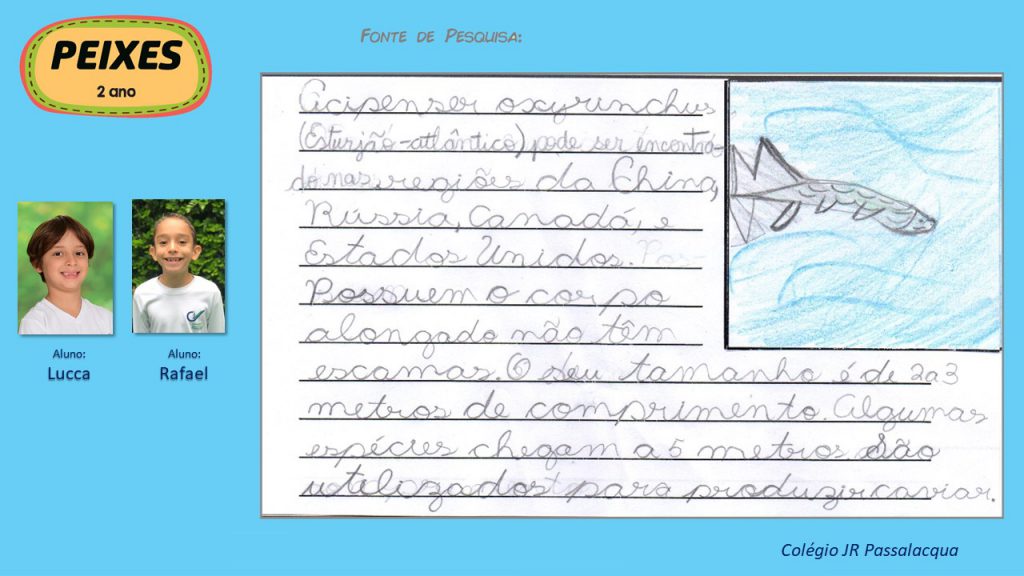 PEIXES
2 ano
FONTE DE PESQUISA:
Acipenser oxyrinchus
(Esturjão-atlântico) pode ser encontra-
do nas regiões da China,
Rússia, Canadá, e
Estados Unidos.
Possuem o corpo
alongado não têm
escamas. O seu tamanho é de 2 a 3
metros de comprimento. Algumas
espécies chegam a 5 metros São
utilizados para produzir caviar.
Aluno:
Lucca
Aluno:
Rafael
Colégio JR Passalacqua